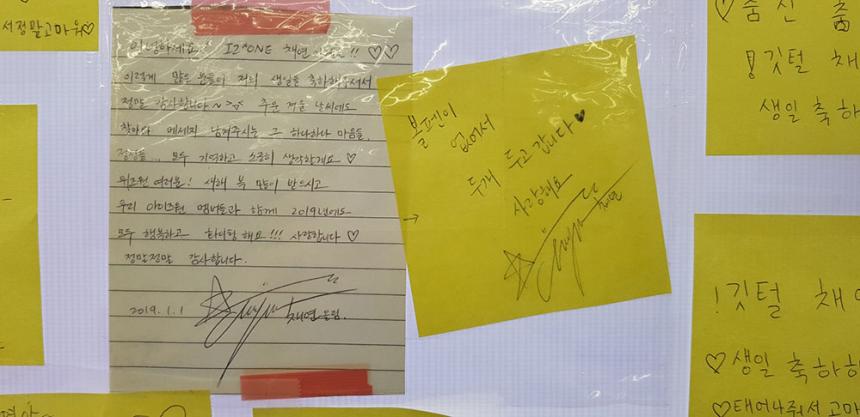 서정말고마우♡
안녕하세요 IZ*ONE 채연입니다!! ♡♡
이렇게 많은 분들이 저의 생일을 축하해주셔서
정말 감사합니다~ 추운 겨울 날씨에도
찾아와 메세지 남겨주시는 그 하나하나 마음들,
정성들... 모두 기억하고 소중히 생각할게요 ♡
위즈원 여러분! 새해 복 많이 받으시고
우리 아이즈원 멤버들과 함께 2019년에도
모두 행복하고 화이팅 해요!!! 사랑합니다 ♡
정말정말 감사합니다.
2019. 1. 1
채연 올림.
볼펜이
없어서
두개 두고 갑니다♥
사랑해요
→
채연
♡춤신 춤
!깃털 채
생일 축하
!깃털 채
♡생일 축하하
♡태어나줘서 고마